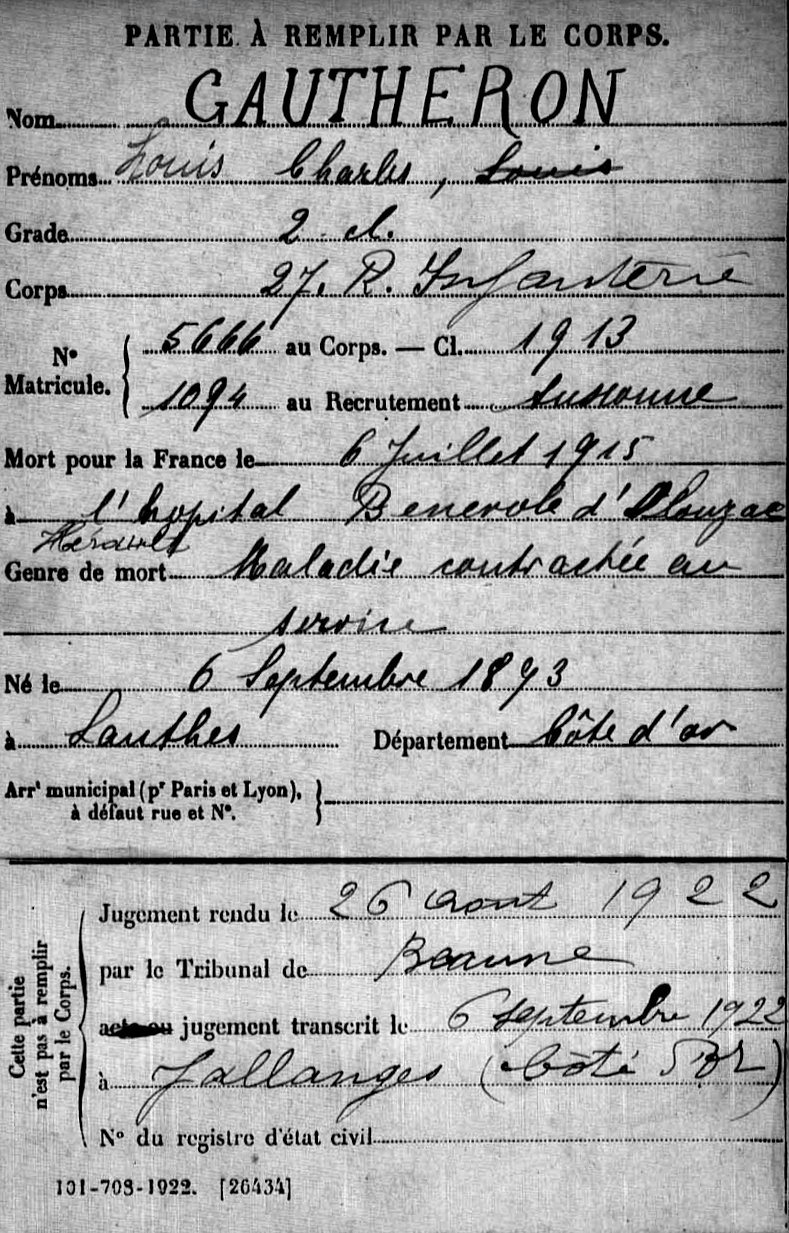 PARTIE À REMPLIR PAR LE CORPS.
Nom GAUTHERON
Prénoms Louis Charles, Louis
Grade 2 cl.
Corps 27. R. Infanterie
N° Matricule. 5666 au Corps. — Cl. 1913
1094 au Recrutement Auxonne
Mort pour la France le 6 Juillet 1915
à l'hopital Benevole d'Olonzac
Herault
Genre de mort Maladie contractée au
service
Né le 6 Septembre 1893
à Lanthes Département Côte d'or
Arrt municipal (pr Paris et Lyon),
à défaut rue et N°.
Cette partie n'est pas à remplir par le Corps.
Jugement rendu le 26 Aout 1922
par le Tribunal de Beaune
acte ou jugement transcrit le 6 septembre 1922
à Jallanges (Côte d'Or)
N° du registre d'état civil
101-708-1922. [26434]